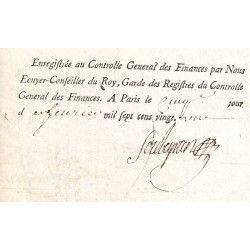 Enregistrée au Controlle General des Finances par Nous
Ecuyer-Conseiller du Roy, Garde des Registres du Controlle
General des Finances. A Paris le jour
d fevrier mil sept cens vingt